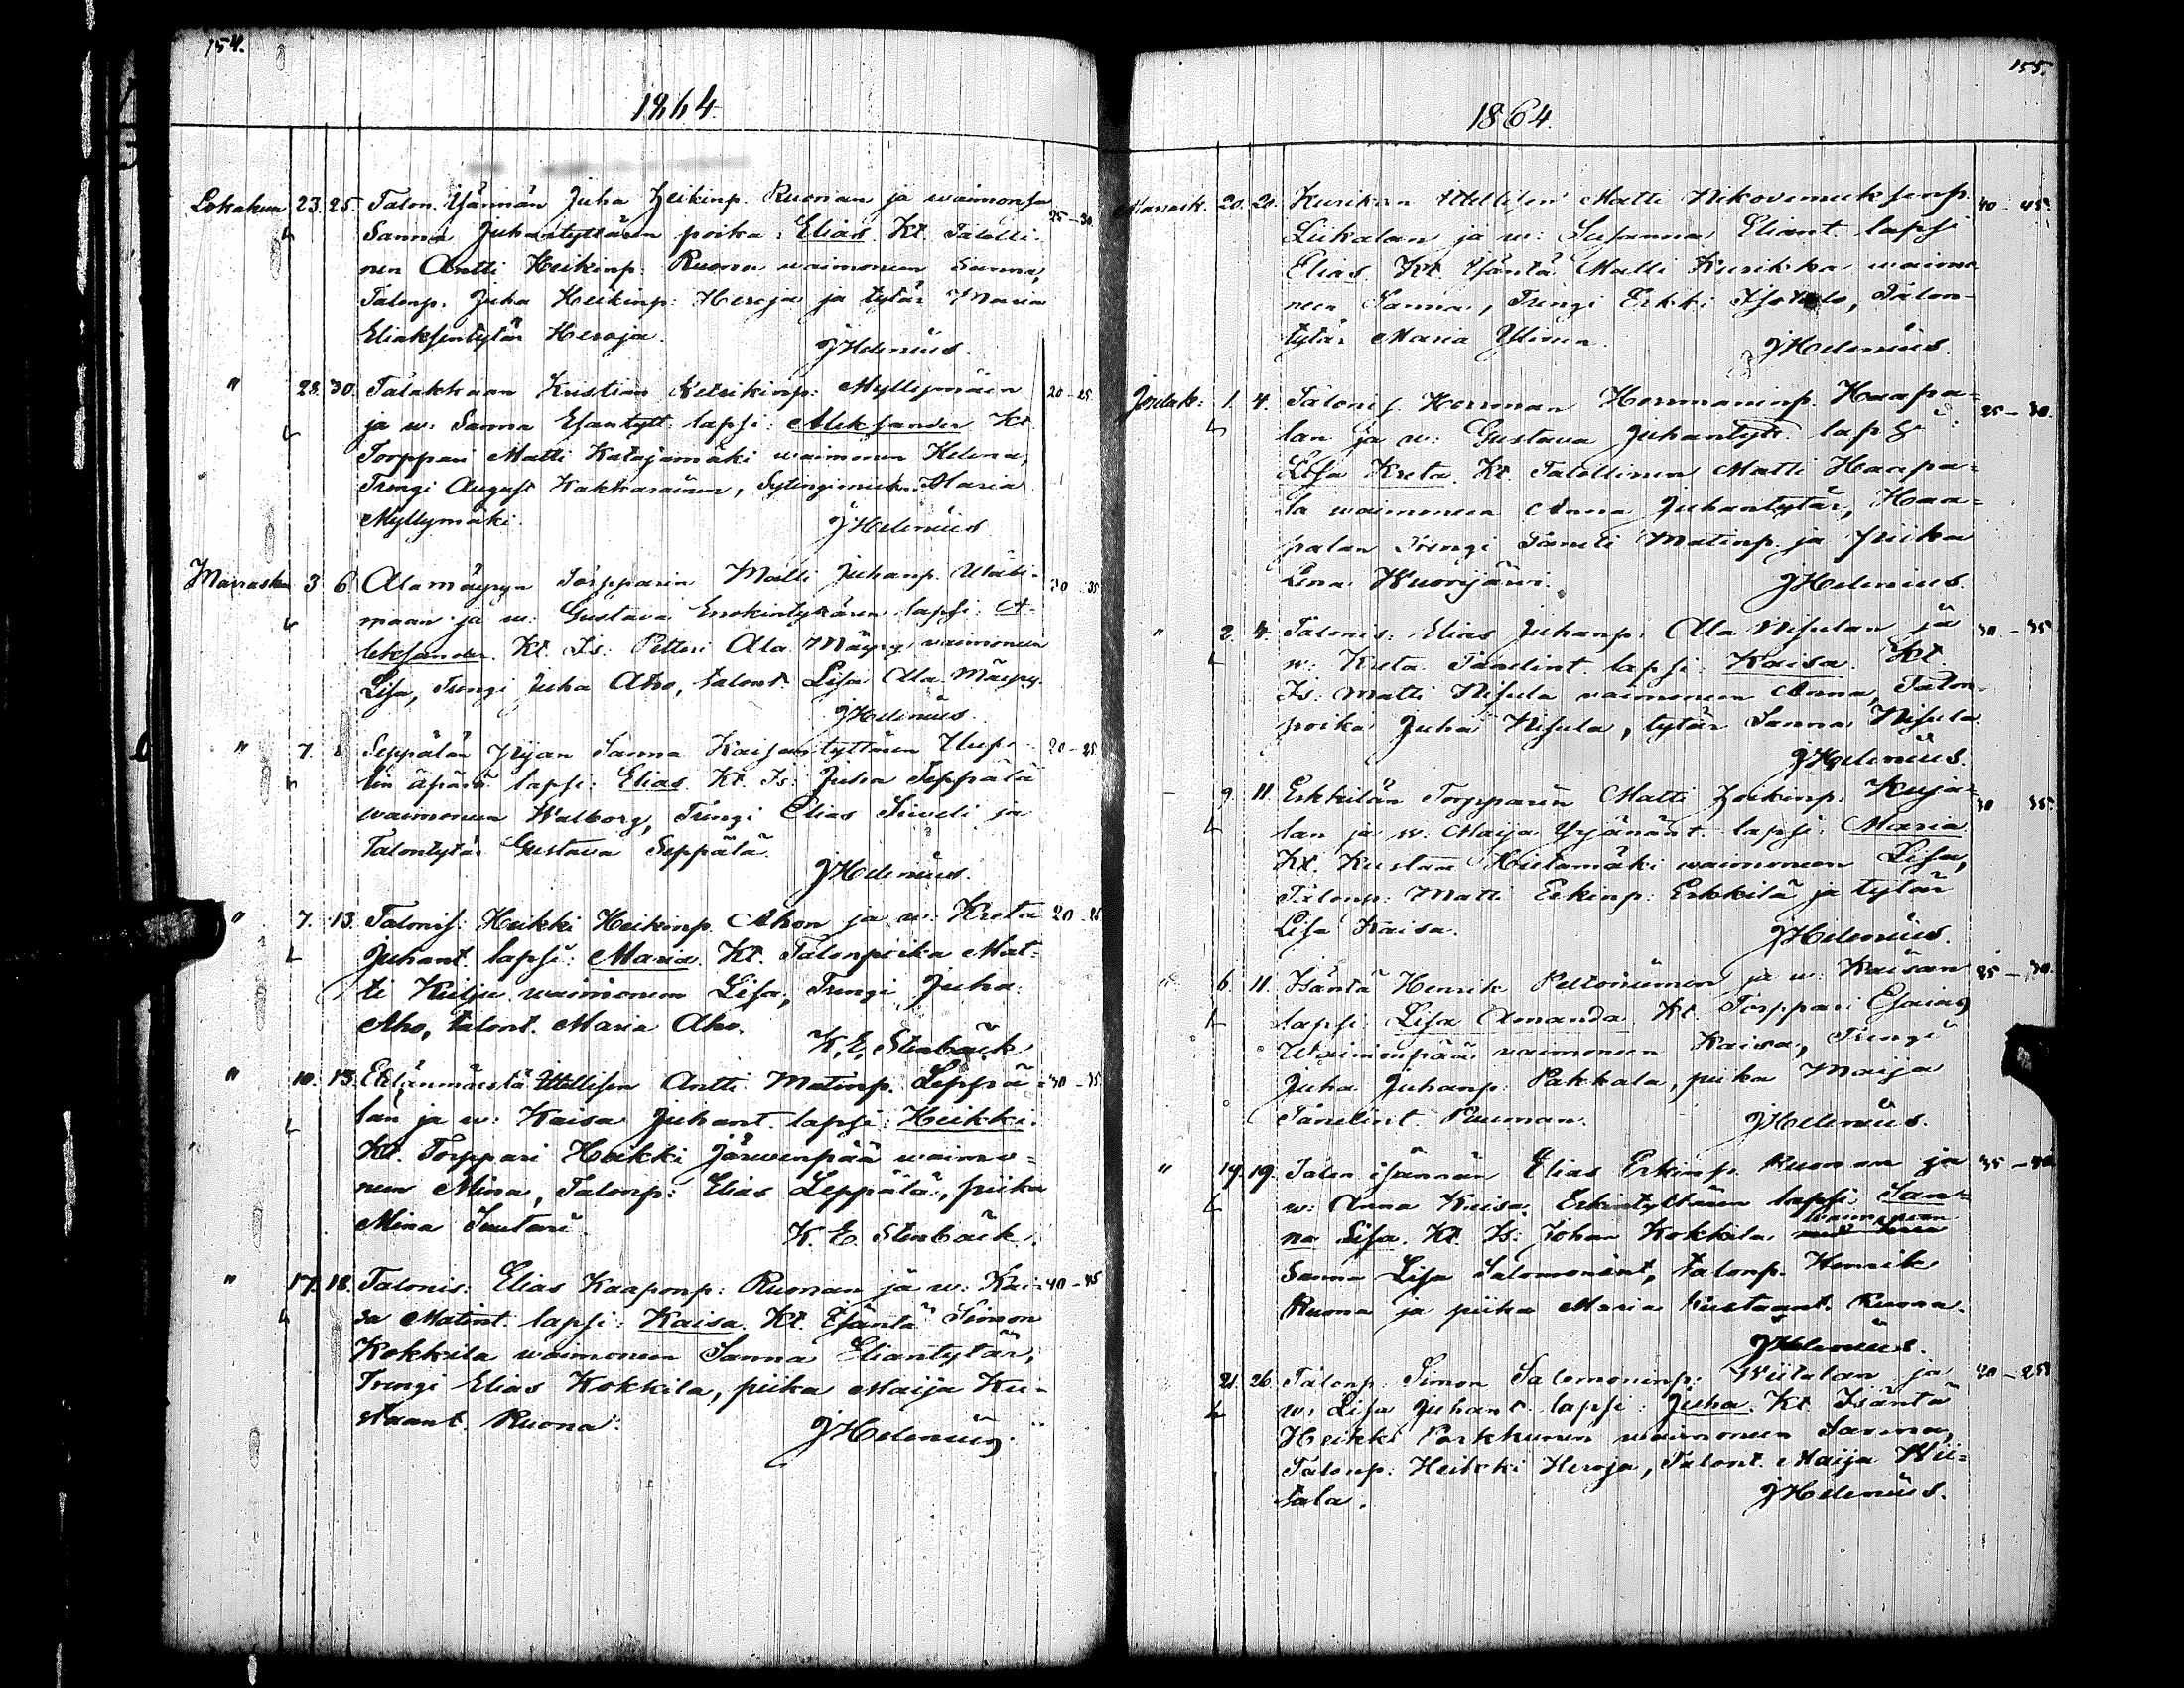 154.
1864.
Lokakuu 23. 25. Talon. Isännän Juha Heikinp. Ruonan ja waimonsa 25-30.
Sanna Juhantyttären poika: Elias. Kt. Talolli-
nen Antti Heikinp. Ruona waimoneen Sanna,
Talonp. Juha Heikinp: Heroja ja tytär Maria
Eliaksentytär Heroja.
JHelenius.
" 28. 30. Talakkaan Kustian Myllymäen 20-25.
ja w: Sanna Esantytt. lapsi: Aleksander Kt.
Torppari Matti Katajamäki waimoneen Helena,
Trengi August Kakkarainen, Maria
Myllymäki.
JHelenius
Marraskuu 3 6. Alamäyryn Torpparin Matti Juhanp. 30-35
maan ja w: Gustava lapsi: A-
leksander. Kt. Is: Petteri Ala Mäyry waimoneen
Lisa, Trengi Juha Aho, talont. Lisa Ala Mäyry.
JHelenius.
" 7. Seppälän Piian Sanna Kaisantyttären 20-25
lin äpärä lapsi: Elias. Kt. Is: Juha Seppälä
waimoneen Walborg, Trengi Elias ja
Talontytär Gustava Seppälä.
JHelenius.
" 7. 13. Talonis: Heikki Heikinp. Ahon ja w: Kreta 20-25
Juhant. lapsi: Maria. Kt. Talonpoika Mat-
ti waimoneen Lisa, Trengi Juha
Aho, talont. Maria Aho.
K. E. Stenbäck
" 10. 13. Itsellisen Antti Matinp. Leppä- 30-35
län ja w: Kaisa Juhant. lapsi: Heikki.
Kt. Torppari Heikki Järwenpää waimo-
neen Mina, Talonp: Elias Leppälä, piika
Mina Suutari.
K. E. Stenbäck.
" 17. 18. Talonis: Elias Kaaponp: Ruonan ja w: Kai- 40-45
sa Matint. lapsi: Kaisa. Kt. Isäntä Simon
Kokkila waimoneen Sanna Eliantytär,
Trengi Elias Kokkila, piika Maija Ku-
staant. Ruona.
JHelenius.
155.
1864.
Marrask. 20. 20. Kurikan Itsellisen Matti Nikodemuksenp. 40-45.
Liikalan ja w: Susanna Eliant. lapsi
Elias. Kt. Isäntä Matti Kurikka waimo-
neen Sanna, Trengi Erkki Isotalo, Talon-
tytär Maria
JHelenius.
Jouluk: 1. 4. Talonis. Herman Hermaninp. Haapa- 25-30.
lan ja w: Gustava Juhantytt. lapsi:
Lisa Kreta. Kt. Talollinen Matti Haapa-
la waimoneen Anna Juhantytär, Haa-
palan Trengi Taneli Matinp. ja piika
Lena Wuorijärwi.
JHelenius.
" 2. 4. Talonis: Elias Juhanp: Ala Nisulan ja 30-35
w: Kreta Tanelint. lapsi: Kaisa. Kt.
Is: Matti Nisula waimoneen Anna, Talon-
poika Juha Nisula, tytär Sanna Nisula.
JHelenius.
9. 11. Erkkilän Torpparin Matti Heikinp: Kuja- 30 35.
lan ja w: Maija Yrjänänt. lapsi: Maria
Kt. Kustaa Hietamäki waimoneen Lisa,
Talonp: Matti Erkinp: Erkkilä ja tytär
Lisa Kaisa.
JHelenius.
" 6. 11. Isäntä Henrik Peltoniemen ja w: Kaisan 25-30.
lapsi: Lisa Amanda. Kt. Torppari Esaias
Wainionpää waimoneen Kaisa, Trengi
Juha Juhanp: Pakkala, piika Maija
Tanelint. Ruonan.
JHelenius.
" 17. 19. Talon isännän Elias Erkinp. Ruonan ja 35-40
w: Anna Kaisa Erkintyttären lapsi: San-
na Lisa. Kt. Is: Johan Kokkila waimoneen
Sanna Lisa Salomonint, talonp. Henrik
Ruona ja piika Maria Kustaant. Ruona.
JHelenius.
21. 26. Talonp. Simon Salomoninp: Wiitalan ja 20-25
w: Lisa Juhant. lapsi: Juha. Kt. Isäntä
Heikki Porkkunen waimoneen Sanna,
Talonp: Heikki Heroja, Talont. Maija Wii-
tala.
JHelenius.